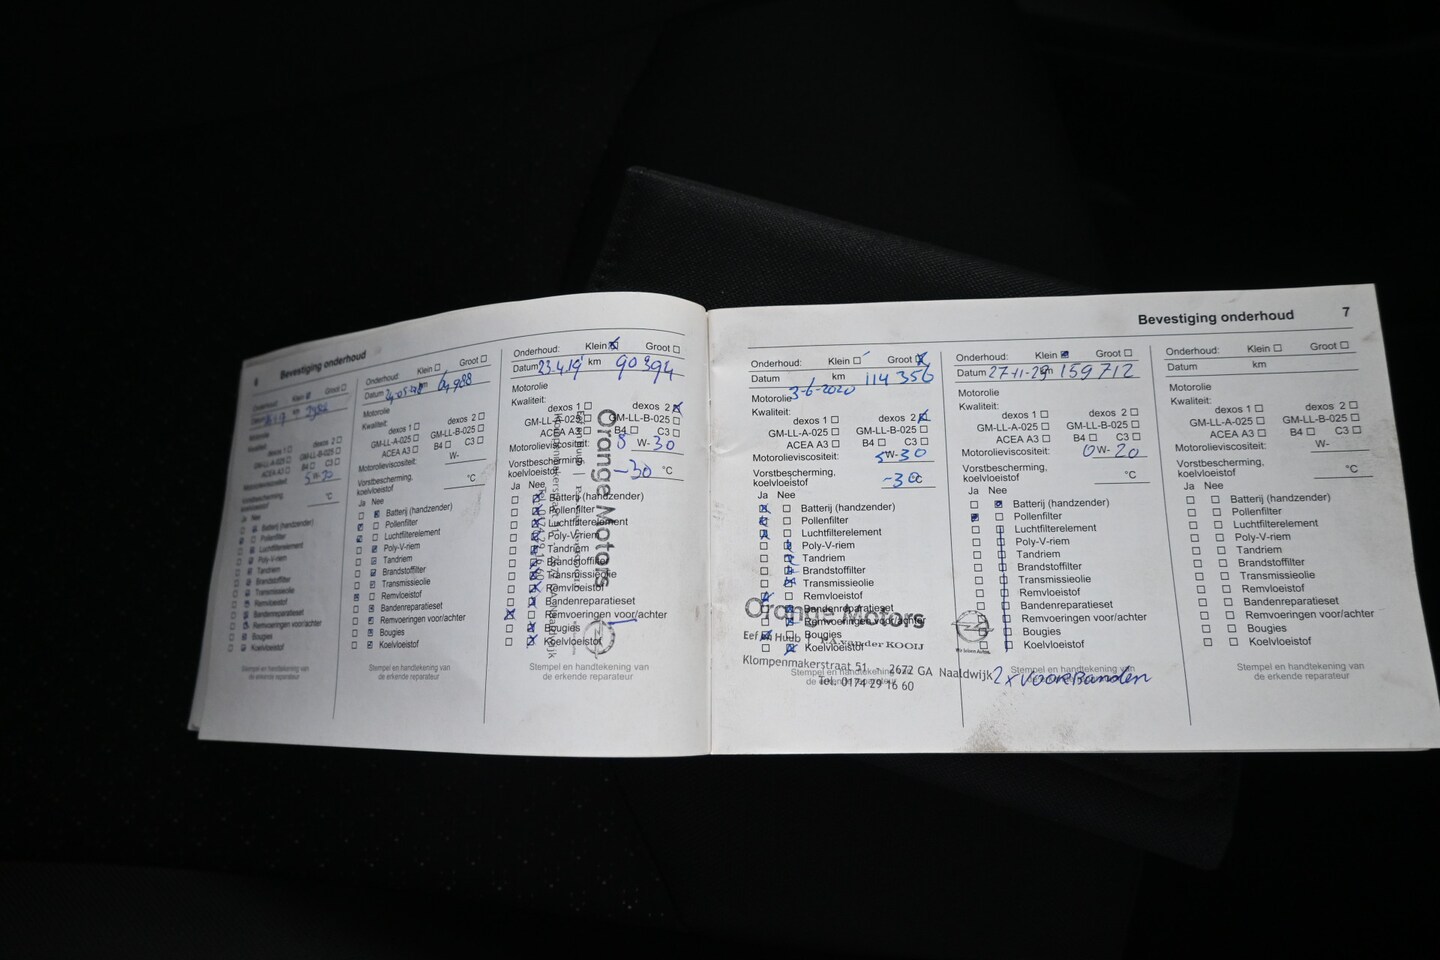 6
Bevestiging onderhoud
Onderhoud: Klein Groot
Motorolie
Kwaliteit:
dexos 1 dexos 2
GM-LL-A-025 GM-LL-B-025
ACEA A3 B4 C3
Motorolieviscositeit: 5W-30
Vorstbescherming,
koelvloeistof °C
Ja Nee
Batterij (handzender)
Pollenfilter
Luchtfilterelement
Poly-V-riem
Tandriem
Brandstoffilter
Transmissieolie
Remvloeistof
Bandenreparatieset
Remvoeringen voor/achter
Bougies
Koelvloeistof
Stempel en handtekening van
de erkende reparateur
Onderhoud: Klein Groot
Datum km
Motorolie
Kwaliteit:
dexos 1 dexos 2
GM-LL-A-025 GM-LL-B-025
ACEA A3 B4 C3
Motorolieviscositeit: W-
Vorstbescherming,
koelvloeistof °C
Ja Nee
Batterij (handzender)
Pollenfilter
Luchtfilterelement
Poly-V-riem
Tandriem
Brandstoffilter
Transmissieolie
Remvloeistof
Bandenreparatieset
Remvoeringen voor/achter
Bougies
Koelvloeistof
Stempel en handtekening van
de erkende reparateur
Onderhoud: Klein Groot
Datum 23.4.19 km 90394
Motorolie
Kwaliteit:
dexos 1 dexos 2
GM-LL-A-025 GM-LL-B-025
ACEA A3 B4 C3
Motorolieviscositeit: W-30
Vorstbescherming,
koelvloeistof -30 °C
Ja Nee
Batterij (handzender)
Pollenfilter
Luchtfilterelement
Poly-V-riem
Tandriem
Brandstoffilter
Transmissieolie
Remvloeistof
Bandenreparatieset
Remvoeringen voor/achter
Bougies
Koelvloeistof
Stempel en handtekening van
de erkende reparateur
Orange Motors
Bevestiging onderhoud
7
Onderhoud: Klein Groot
Datum km 114356
Motorolie 3-6-2020
Kwaliteit:
dexos 1 dexos 2
GM-LL-A-025 GM-LL-B-025
ACEA A3 B4 C3
Motorolieviscositeit: 5W-30
Vorstbescherming,
koelvloeistof -30 °C
Ja Nee
Batterij (handzender)
Pollenfilter
Luchtfilterelement
Poly-V-riem
Tandriem
Brandstoffilter
Transmissieolie
Remvloeistof
Bandenreparatieset
Remvoeringen voor/achter
Bougies
Koelvloeistof
Stempel en handtekening van
de erkende reparateur
Orange Motors
van der KOOIJ
Klompenmakerstraat 51 - 2672 GA Naaldwijk
Tel. 0174 29 16 60
Onderhoud: Klein Groot
Datum km 159712
Motorolie
Kwaliteit:
dexos 1 dexos 2
GM-LL-A-025 GM-LL-B-025
ACEA A3 B4 C3
Motorolieviscositeit: 0W-20
Vorstbescherming,
koelvloeistof °C
Ja Nee
Batterij (handzender)
Pollenfilter
Luchtfilterelement
Poly-V-riem
Tandriem
Brandstoffilter
Transmissieolie
Remvloeistof
Bandenreparatieset
Remvoeringen voor/achter
Bougies
Koelvloeistof
Stempel en handtekening van
de erkende reparateur
2x voorBanden
Onderhoud: Klein Groot
Datum km
Motorolie
Kwaliteit:
dexos 1 dexos 2
GM-LL-A-025 GM-LL-B-025
ACEA A3 B4 C3
Motorolieviscositeit: W-
Vorstbescherming,
koelvloeistof °C
Ja Nee
Batterij (handzender)
Pollenfilter
Luchtfilterelement
Poly-V-riem
Tandriem
Brandstoffilter
Transmissieolie
Remvloeistof
Bandenreparatieset
Remvoeringen voor/achter
Bougies
Koelvloeistof
Stempel en handtekening van
de erkende reparateur